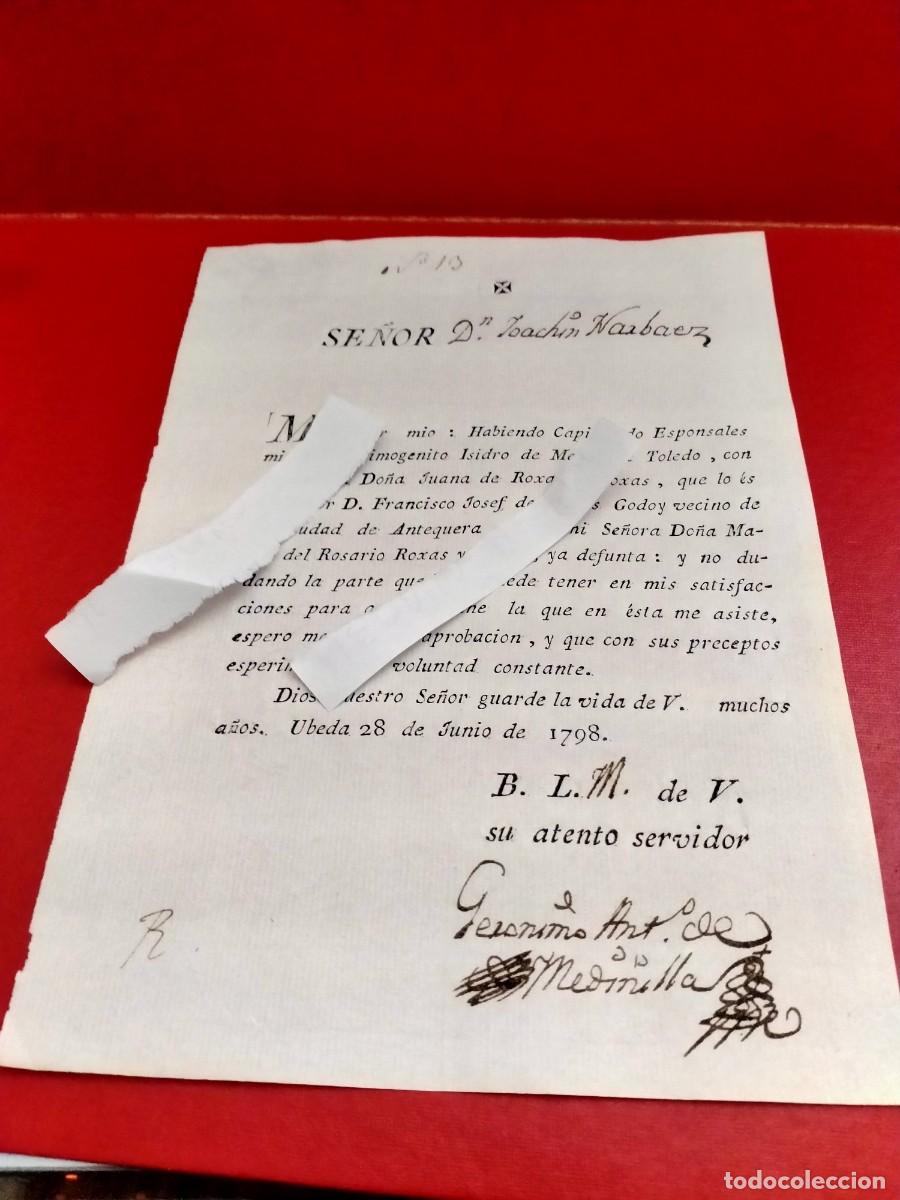 Nº 13
SEÑOR Dn. Joachin Narbaez
M r mio : Habiendo Capi do Esponsales
mi imogenito Isidro de Me Toledo , con
Doña Juana de Rox oxas , que lo és
or D. Francisco Josef de s Godoy vecino de
udad de Antequera mi Señora Doña Ma-
del Rosario Roxas y , ya defunta : y no du-
dando la parte que ede tener en mis satisfac-
ciones para ne la que en ésta me asiste,
espero me aprobacion , y que con sus preceptos
esperi voluntad constante.
Dios uestro Señor guarde la vida de V. muchos
años. Ubeda 28 de Junio de 1798.
B. L. M. de V.
su atento servidor
Geronimo Anto. de
Medinilla
R
todocoleccion